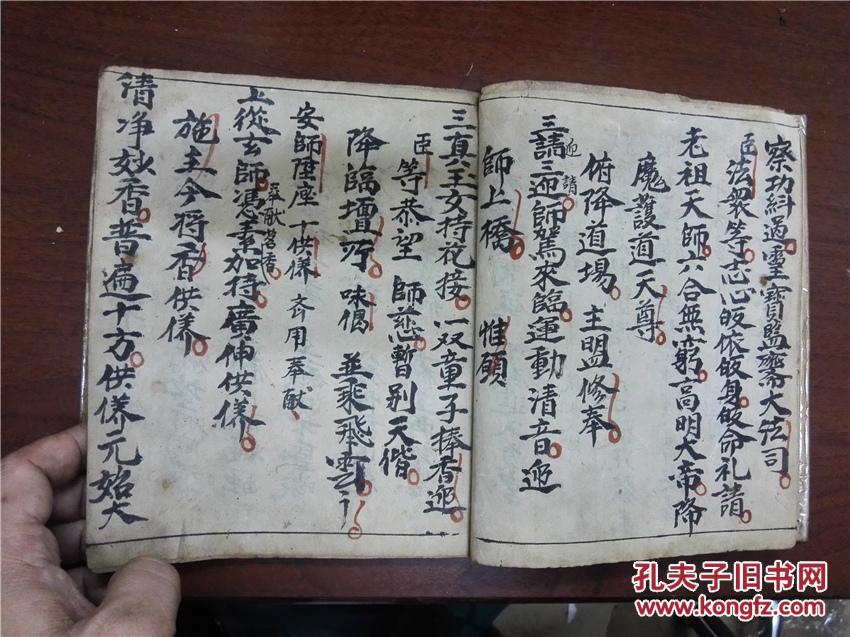 察功糾過靈寶監齋大法司
臣法衆等志心皈依皈身皈命礼請
老祖天師六合無窮高明大帝降
魔護道天尊
俯降道場 主盟修奉
三請三迎師駕來臨運動清音迎
迎請
師上橋 惟願
三真玉女持花接 双童子捧香迎
臣等恭望 師慈暫别天偕
降臨壇所 味偈 並乘飛雲
安師陞座 十供養 齐用奉献
上從玄師憑素加持廣伸供養
奉献茗香
施主今将香供養
清净妙香普遍十方供養元始大
孔夫子旧书网
www.kongfz.com